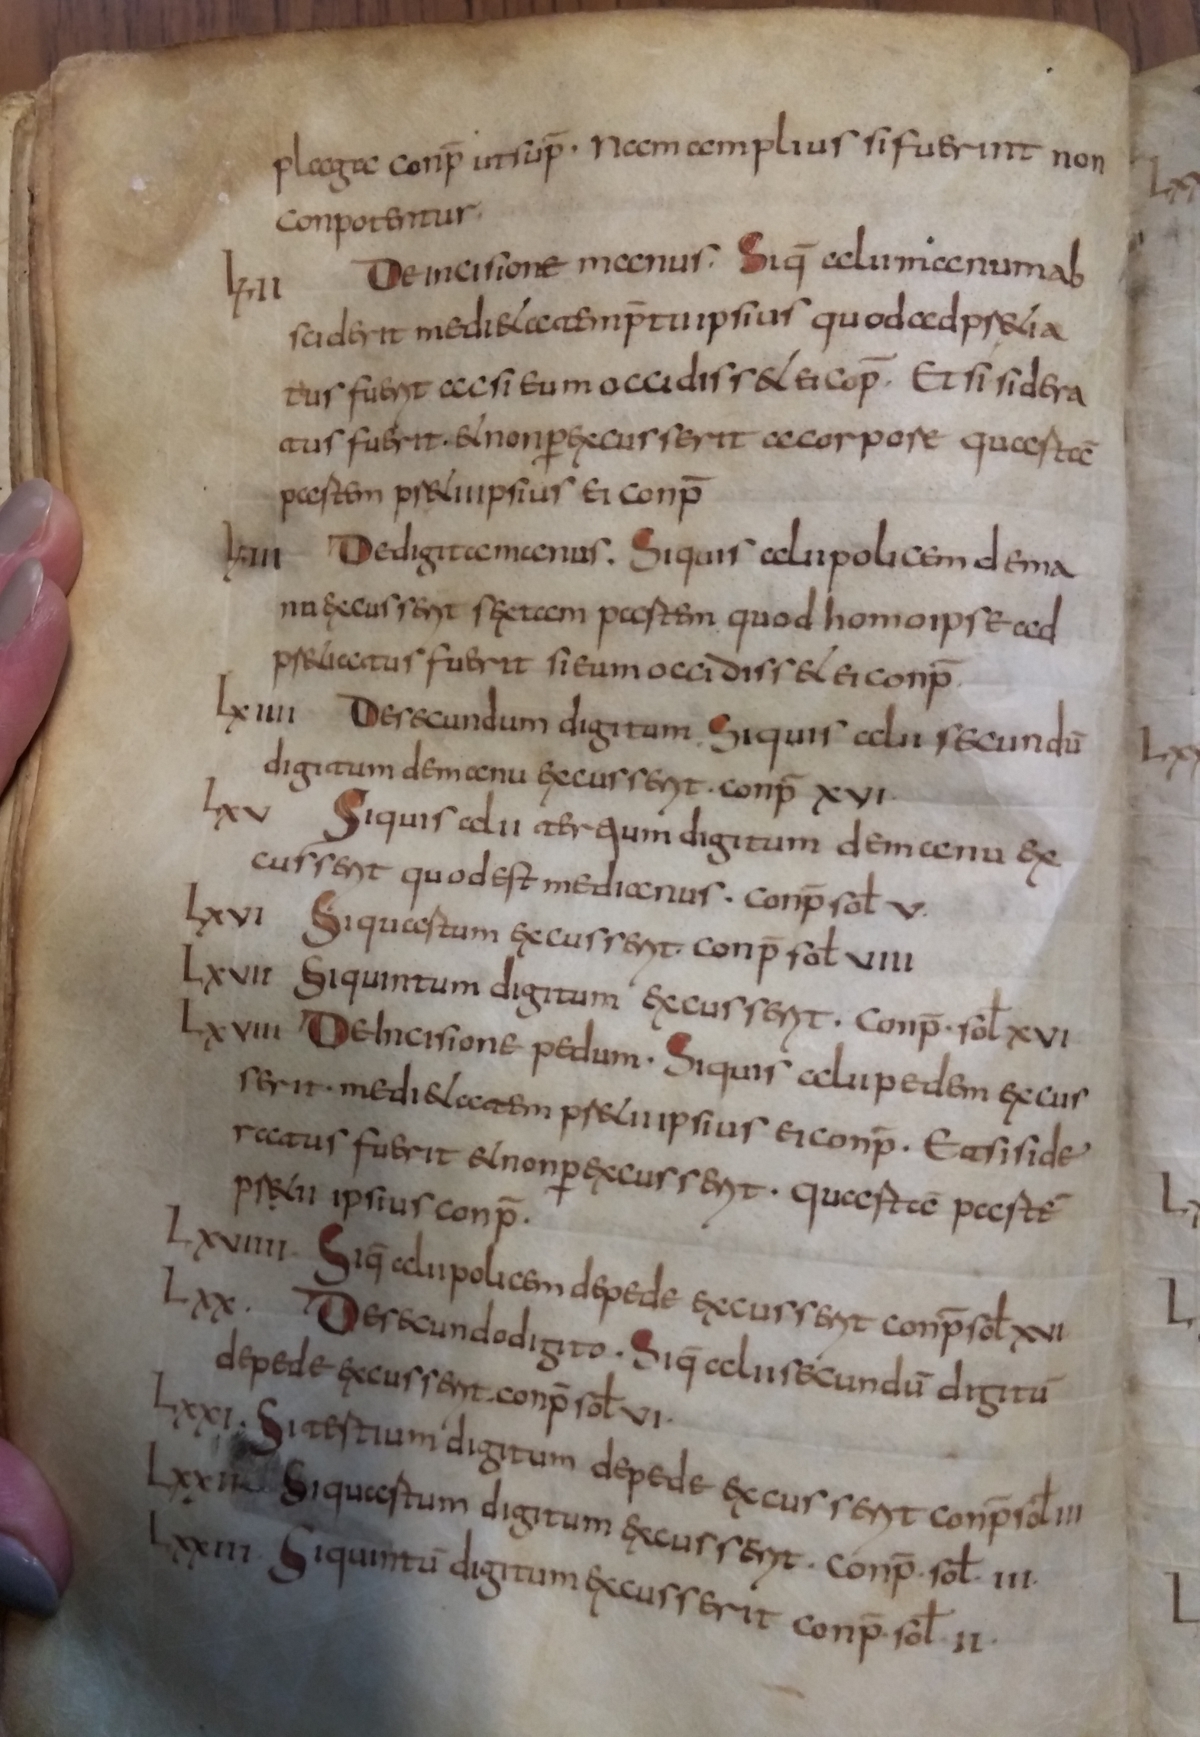 plagae conp̄ ut sup̄. Nam amplius si fuerint non
conpotentur.
Lxii De incisione manus. Siq̄ alii manum ab
sciderit medietatem p̄tii ipsius quod ad pretia
tus fuerit ac si eum occidisset ei cop̄. Et si sidera
tus fuerit. et non p̱excusserit a corpore quartā
partem pretii ipsius ei conp̄
Lxiii De digita manus. Siquis alii policem de ma
nu excusserit sextam partem quod homo ipse ad
pretiatus fuerit si eum occidisset ei conp̄.
Lxiiii De secundum digitum. Siquis alii secundū
digitum de manu excusserit. conp̄ xvi.
Lxv Siquis alii tertium digitum de manu ex
cusserit quod est medianus. conp̄ soł v.
Lxvi Si quartum excusserit. conp̄ soł viiii
Lxvii Si quintum digitum excusserit. conp̄. soł xvi
Lxviii De incisione pedum. Siquis alii pedem excus
serit. medietatem pretii ipsius ei conp̄. Et si side
ratus fuerit et non p̱excusserit. quartā partē
pretii ipsius conp̄.
Lxviiii. Siq̄ alii policem de pede excusserit conp̄ soł xvi
Lxx. De secundo digito. Siq̄ alii secundū digitū
de pede excusserit. conp̄ soł vi.
Lxxi. Si tertium digitum de pede excusserit conp̄ soł iii
Lxxii Si quartum digitum excusserit. conp̄. soł. iii.
Lxxiii. Si quintū digitum excusserit conp̄. soł. ii.